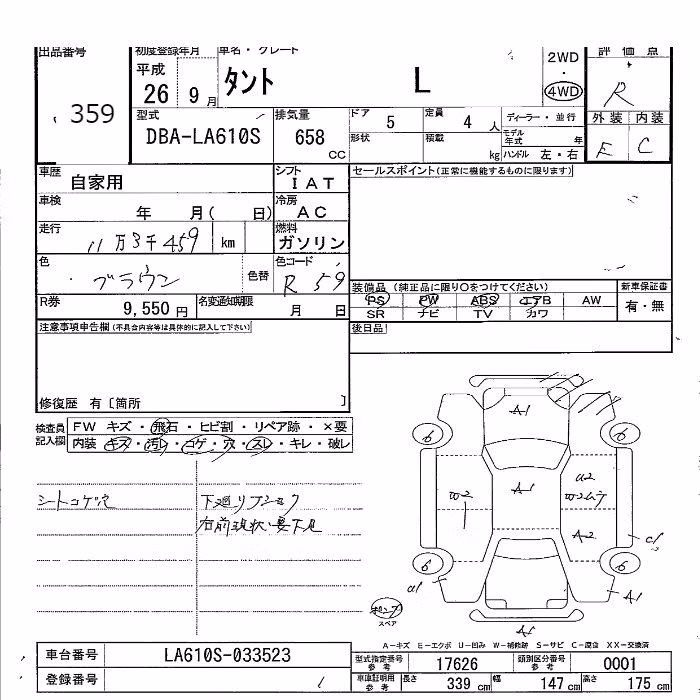 出品番号 359
初度登録年月 平成 26 9月
車名・グレード タント L
2WD・4WD
評価点 R
外装 内装
E C
型式 DBA-LA610S
排気量 658 CC
ドア 5
定員 4人
ディーラー・並行
形状
積載 kg
モデル年式 年
ハンドル 左・右
車歴 自家用
シフト IAT
セールスポイント(正常に機能するものに限ります)
車検 年 月( 日)
冷房 AC
走行 11万3千459 km
燃料 ガソリン
色 ブラウン 色替
色コード R59
装備品 (純正品に限り○をつけてください)
新車保証書
PS PW ABS エアB AW
有・無
SR ナビ TV カワ
R券 9,550円
名変通知期限 月 日
後日品
注意事項申告欄(不具合内容等は具体的に記入して下さい)
修復歴 有〔箇所 〕
検査員記入欄
FW キズ・飛石・ヒビ割・リペア跡・×要
内装 キズ・汚レ・コゲ・穴・スレ・キレ・破レ
シートコゲ穴
下廻り
右前現状
A1
6 6
U2
W2 A1
A2
6 6
a1 A1
スペア
A1
A-キズ E-エクボ U-凹み W-補修跡 S-サビ C-腐食 XX-交換済
車台番号 LA610S-033523
登録番号
型式指定番号 参考 17626
類別区分番号 参考 0001
車庫証明用 参考 長さ 339 cm 幅 147 cm 高さ 175 cm